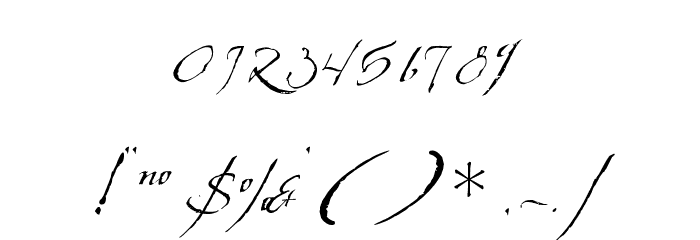 0123456789
!"no$%&'()*,-./